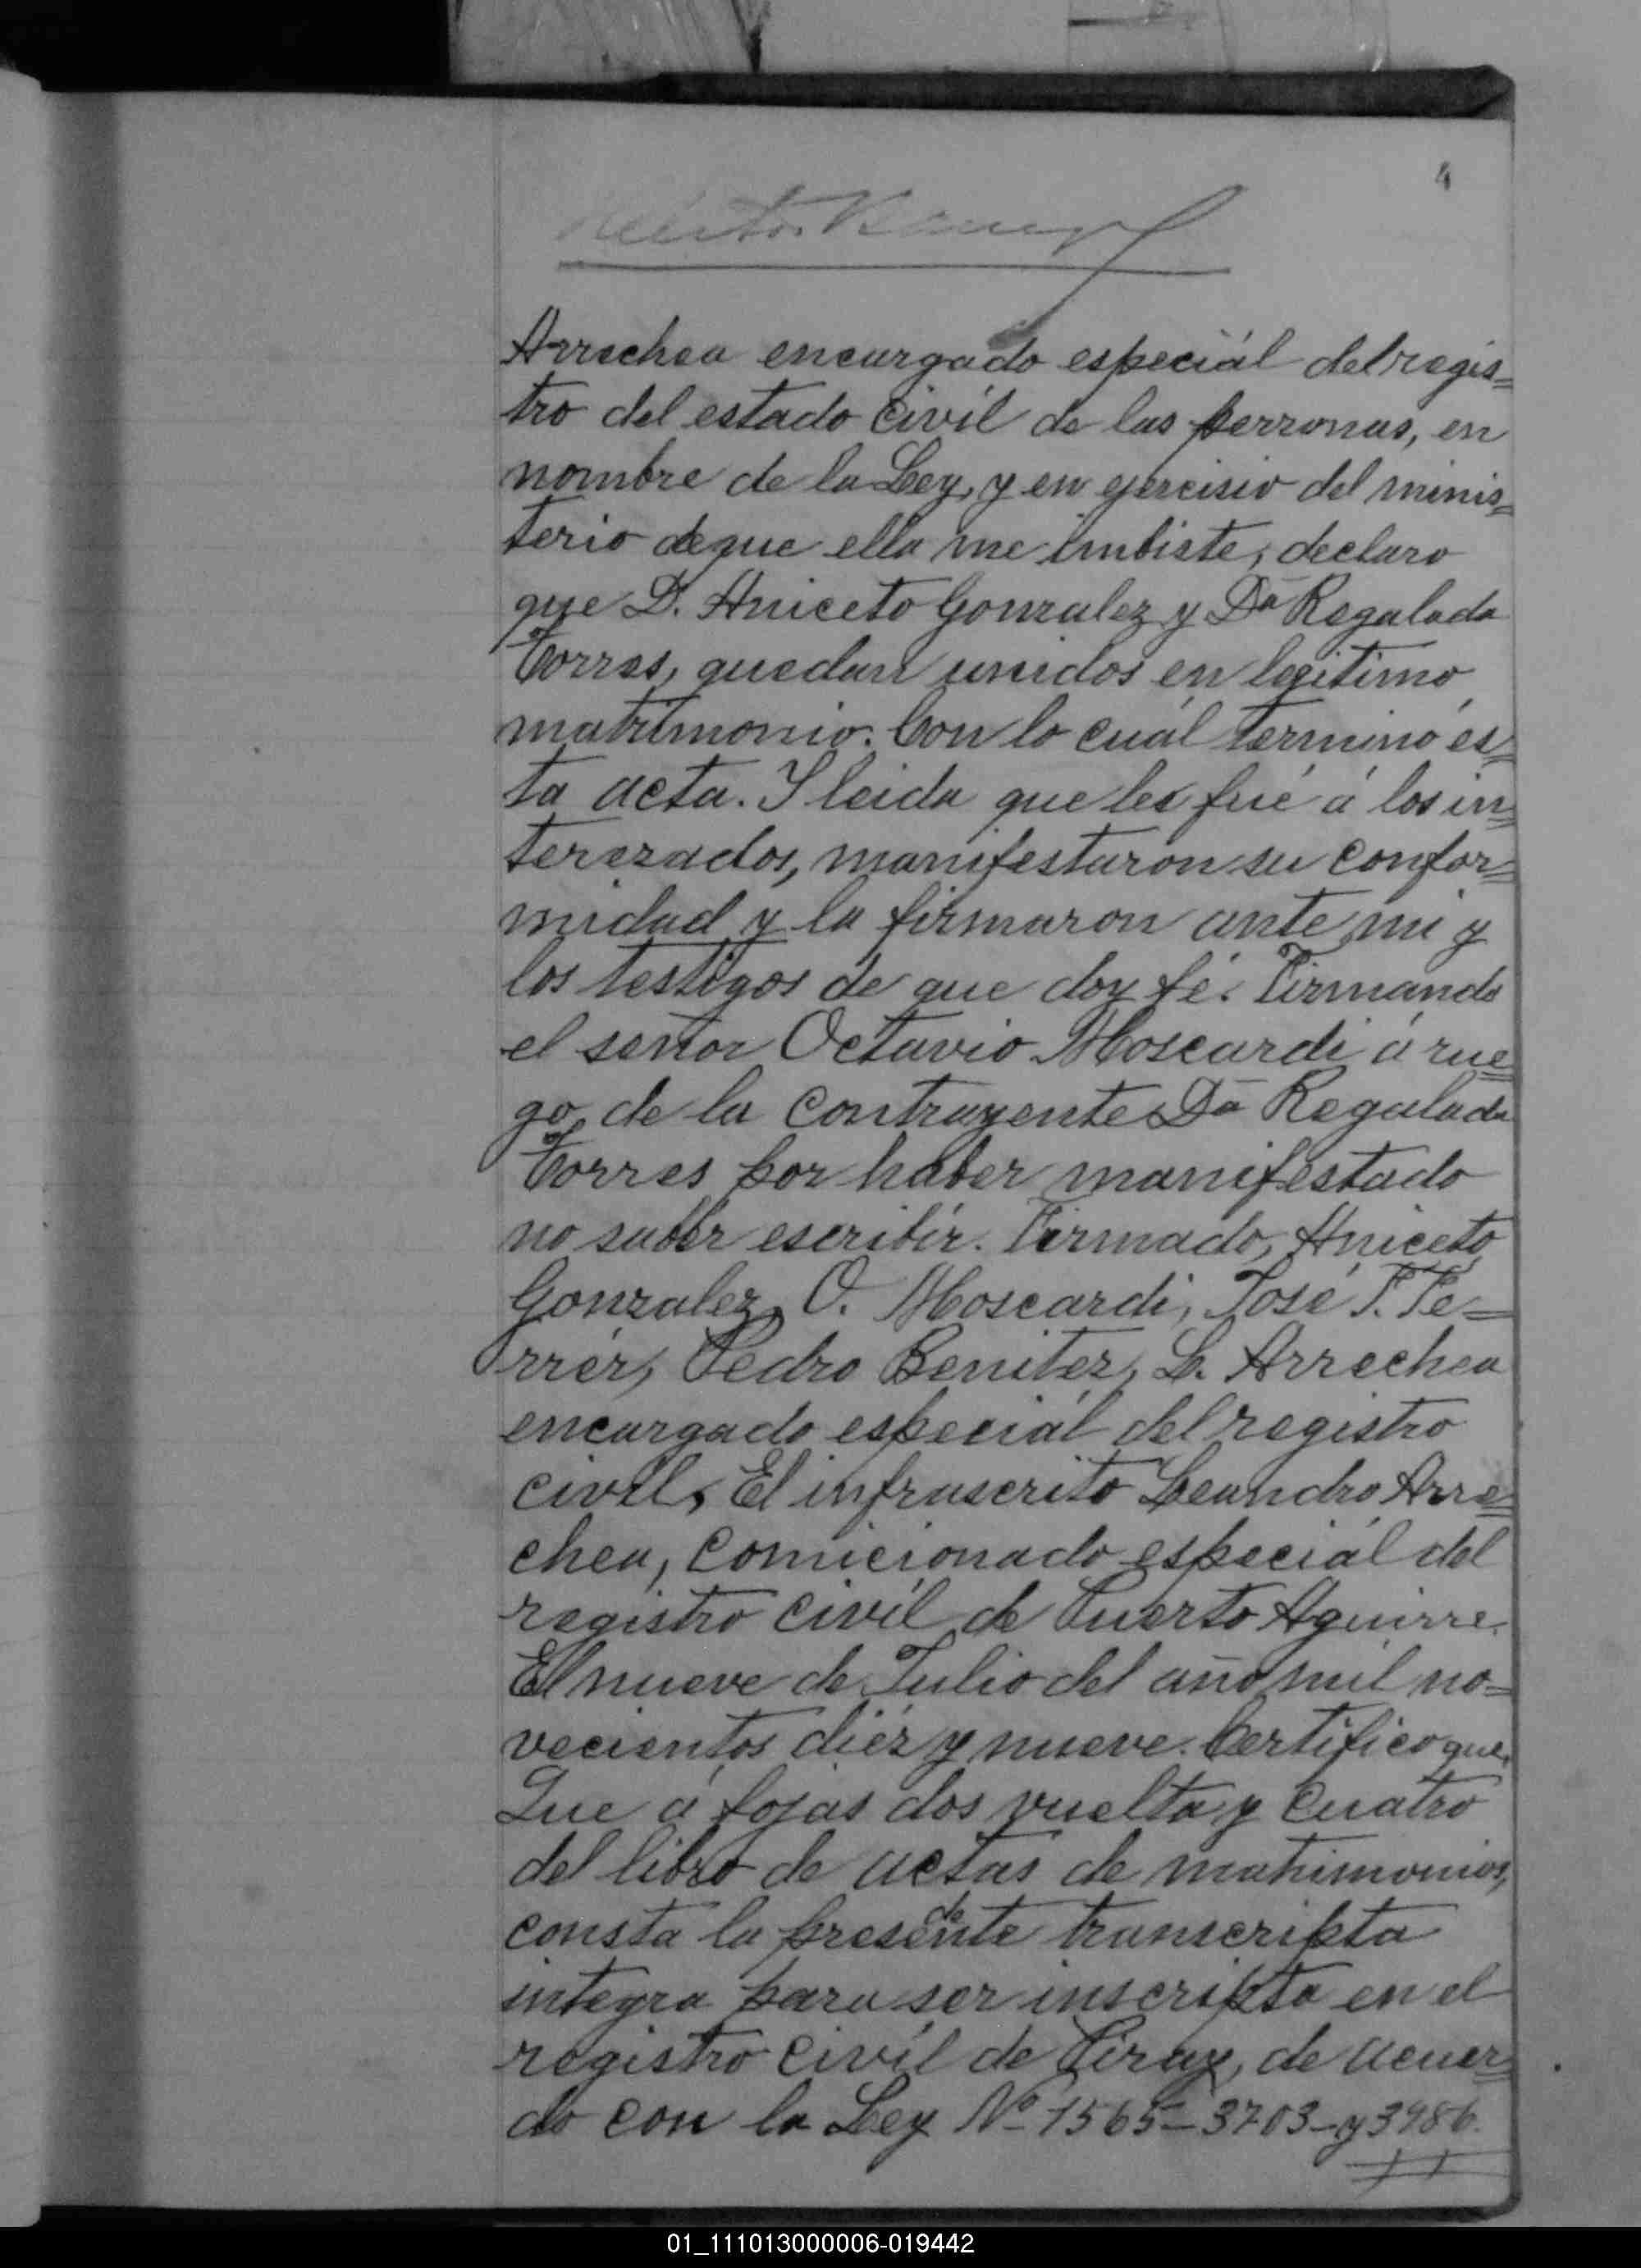 4
Arrechea encargado especiál del regis=
tro del estado civíl de las perzonas, en
nombre de la Ley, y en ejercisio del minis=
terio deque ella me imbiste, declaro
que D. Aniceto Gonzalez y Dª Regalada
Torres, quedan unidos en legitimo
matrimonio. Con lo cuál terminó és=
ta acta. I leida que les fué á los in=
terezados, manifestaron su confor=
midad y la firmaron ante mi y
los testigos de que doy fé. Firmando
el señor Octavio Moscardi á rue=
go de la contrayente Dª Regalada
Torres por haber manifestado
no saber escribír. Firmado, Aniceto
Gonzalez, O. Moscardi, José F. Fe=
rrér, Pedro Benitez, L. Arrechea
encargado especiál del registro
civíl, El infrascrito Leandro Arre=
chea, comicionado especiál del
registro civíl de Puerto Aguirre.
El nueve de Julio del año mil no=
vecientos diéz y nueve. Certifico que
Que á fojas dos vuelta y cuatro
del libro de actas de matrimonios,
consta la presente de transcripta
integra para ser inscripta en el
registro civíl de Piray, de acuer=
do con la Ley Nº 1565-3703-y 3986.
01_111013000006-019442